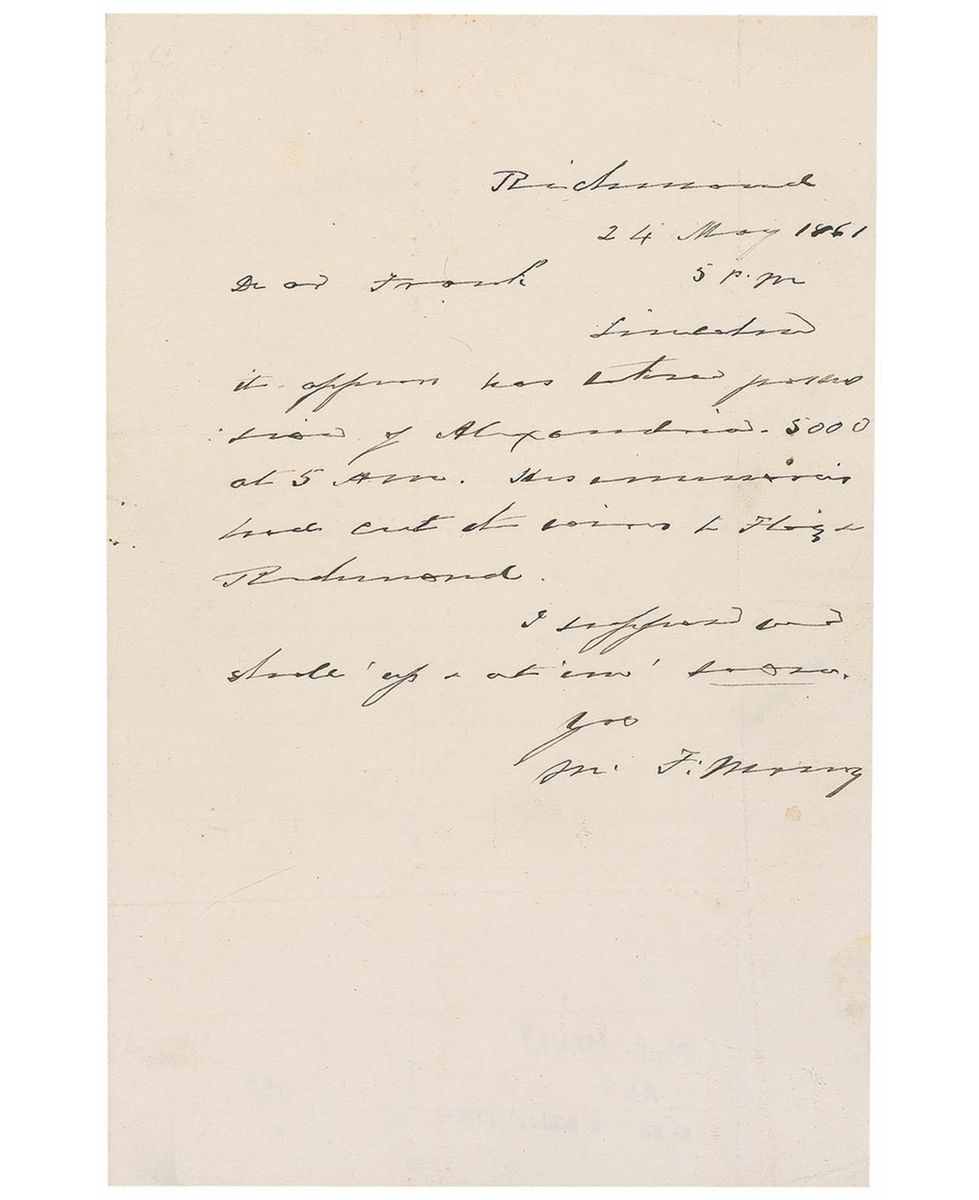 Richmond
24 May 1861
Dear Frank 5 p.m
Lincoln
it appears has taken posses
sion of Alexandria. 5000
at 5 AM. His emissaries
had cut the wires to
Richmond.
I suppose we
shall 'up & at em' soon.
Yrs
M. F. Maury
M. F. MAURY
ALS